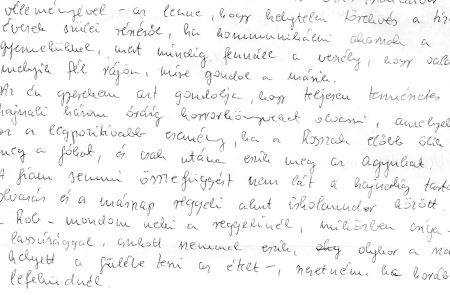 véleményével - az lenne, hogy helytelen törekvés a tize
évesek szülei részéről, ha kommunikálni akarnak a
gyermekükkel, mert mindig fennáll a veszély, hogy vala
melyik fél rájön, mire gondol a másik.
Az én gyerekem azt gondolja, hogy teljesen természetes
hajnali három óráig horrorkönyveket olvasni, amelyek
a legpozitívabb esemény, ha a Rosszak előbb ölik
meg a jókat, és csak utána eszik meg az agyukat.
A fiam semmi összefüggést nem lát a hajnalig tartó
olvasás és a másnap reggeli alvó iskolamodor között.
- Rob - mondom neki a reggelinél, miközben csiga-
lassúsággal, csukott szemmel eszik, olykor a szá
helyett a fülébe teszi az ételt -, szeretném, ha koráb
lefeküdnél.